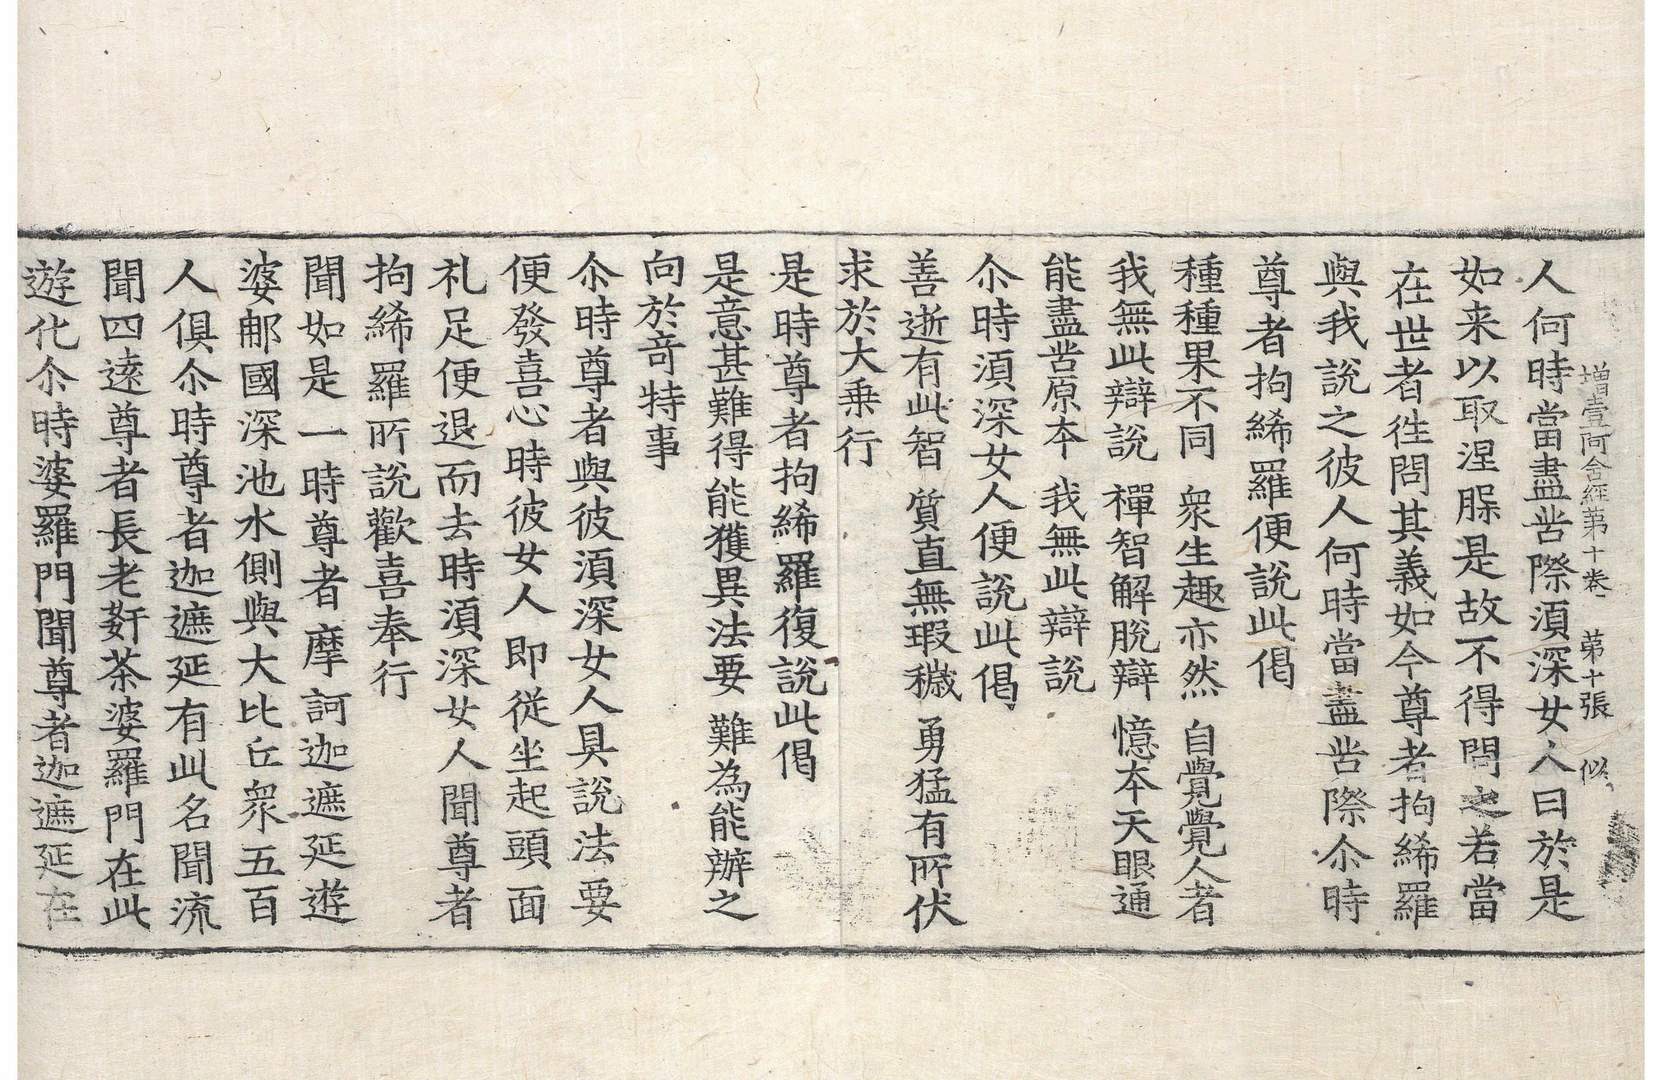 増壹阿含經第十卷 第十張 似
人何時當盡苦際須深女人曰於是
如来以取涅脲是故不得問之若當
在世者徃問其義如今尊者拘絺羅
與我說之彼人何時當盡苦際尒時
尊者拘絺羅便說此偈
種種果不同 衆生趣亦然 自覺覺人者
我無此辯說 禪智解脫辯 憶本天眼通
能盡苦原本 我無此辯說
尒時須深女人便說此偈
善逝有此智 質直無瑕穢 勇猛有所伏
求於大乗行
是時尊者拘絺羅復說此偈
是意甚難得 能獲異法要 難為能辦之
向於竒特事
尒時尊者與彼須深女人具說法要
便發喜心時彼女人即從坐起頭面
礼足便退而去時須深女人聞尊者
拘絺羅所說歡喜奉行
聞如是一時尊者摩訶迦遮延遊
婆䣕國深池水側與大比丘衆五百
人俱尒時尊者迦遮延有此名聞流
聞四逺尊者長老姧荼婆羅門在此
遊化尒時婆羅門聞尊者迦遮延在